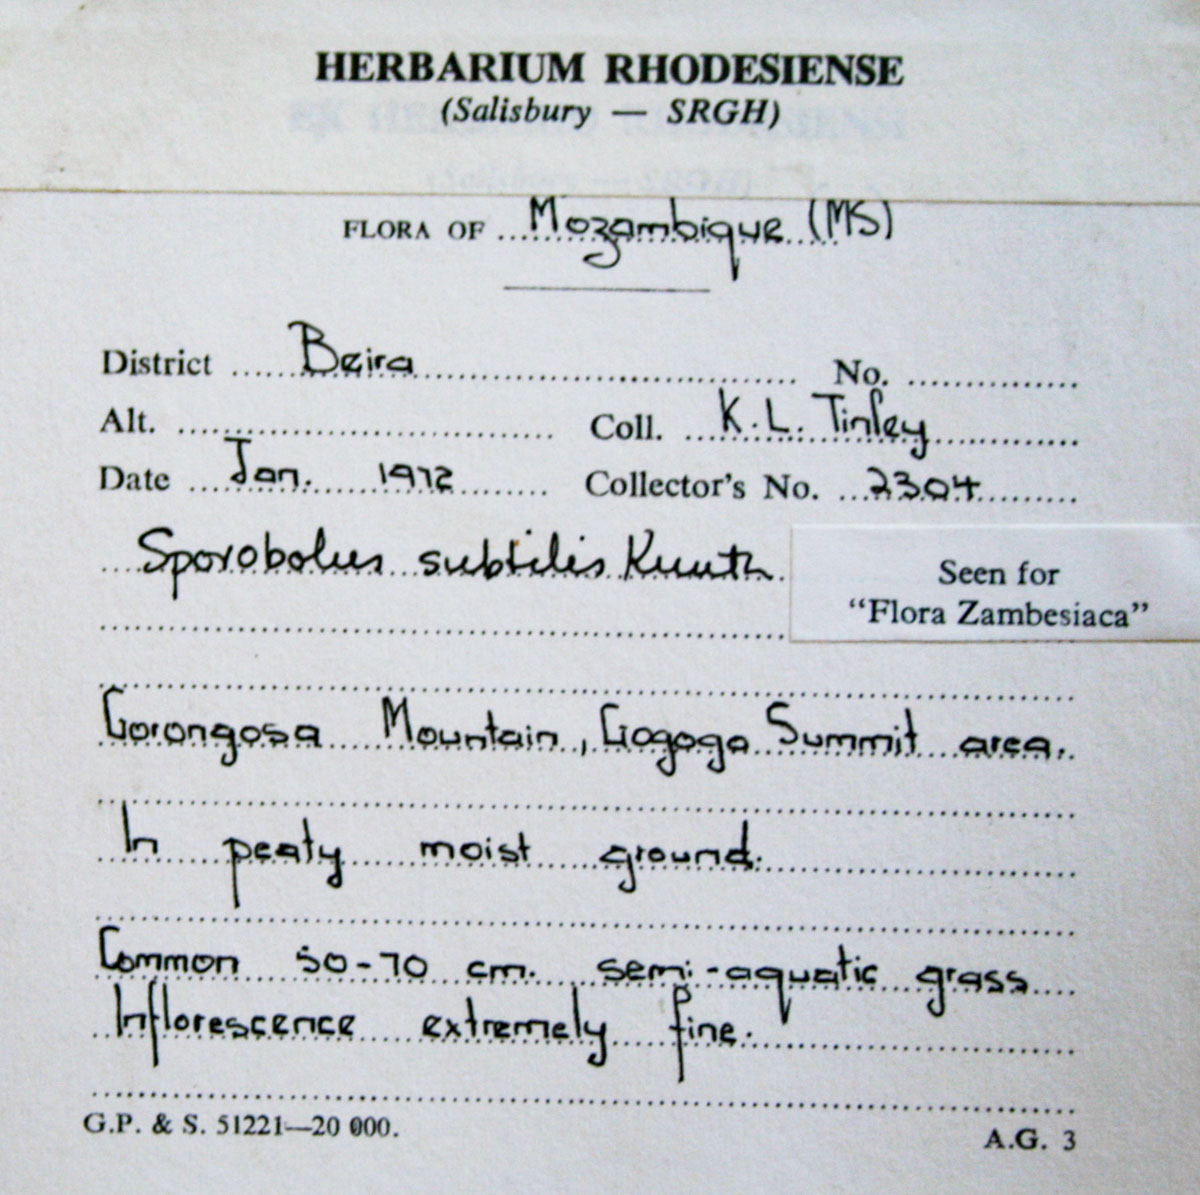 HERBARIUM RHODESIENSE
(Salisbury — SRGH)
FLORA OF Mozambique (MS)
District Beira No.
Alt. Coll. K.L. Tinley
Date Jan. 1972 Collector's No. 2304
Sporobolus subtilis Kunth
Seen for
“Flora Zambesiaca”
Gorongosa Mountain, Gogogo Summit area.
In peaty moist ground.
Common 50-70 cm. semi-aquatic grass
Inflorescence extremely fine.
G.P. & S. 51221—20 000.
A.G. 3